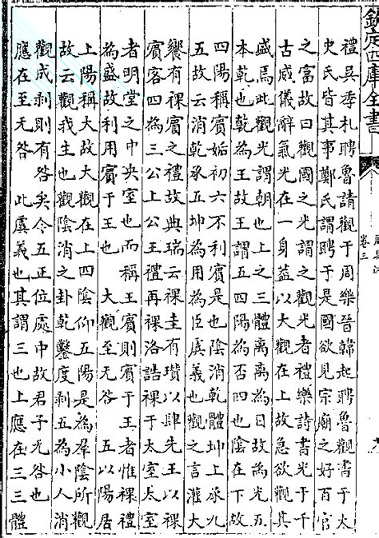 欽定四庫全書
卷三
禮吳季札聘魯請觀于周樂晉韓起聘魯觀書于太
史氏皆其事鄭氏謂聘于是國欲見宗廟之好百官
之富故曰觀國之光謂之觀光者禮樂詩書光于千
古威儀辭氣光在一身益以大觀在上故急欲觀其
盛焉此觀光謂朝也上之三體離離為日故為光五
本乾也乾為王故王謂五四陽為否四也陰在下故
四陽稱賓姤初六不利賓是也陰消乾體坤上承九
五故云消乾承五坤為用為臣虞義也觀之言灌大
饗有祼賓之禮故典瑞云祼圭有瓚以肆先王以祼
賓客四為三公上公王禮再祼洛誥祼于太室太室
者明堂之中央室也而稱王賓則賓于王者惟祼禮
為盛故利用賓于王也 大觀至无咎 五以陽居
上陽稱大故大觀在上四陰仰五陽是為羣陰所觀
故云觀我生也觀陰消之卦乾鑿度剥五為小人消
觀成剥則有咎矣今五正位處中故君子无咎也
應在至无咎 此虞義也其謂三也上應在三三體